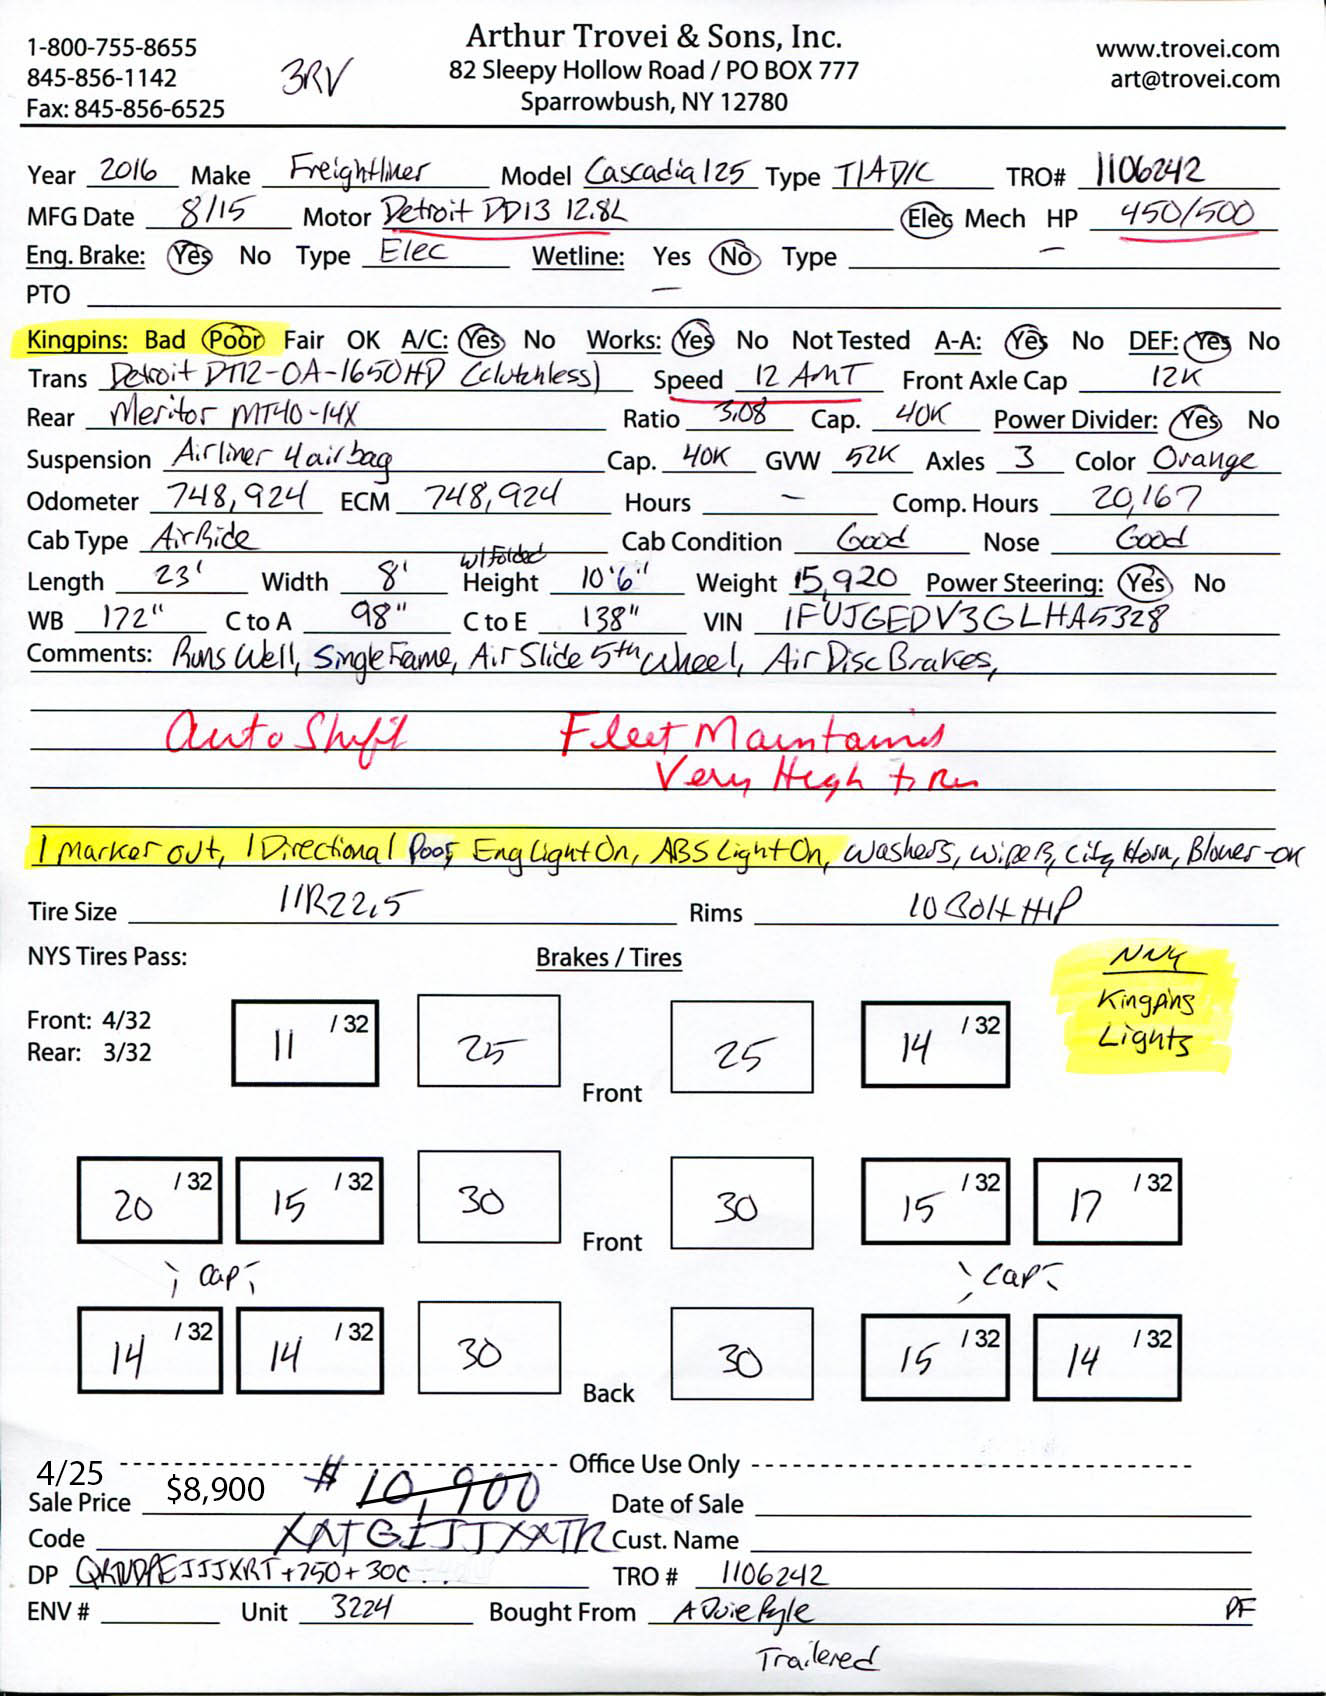 Arthur Trovei & Sons, Inc.
1-800-755-8655 www.trovei.com
845-856-1142 3RV 82 Sleepy Hollow Road / PO BOX 777 art@trovei.com
Fax: 845-856-6525 Sparrowbush, NY 12780
Year 2016 Make Freightliner Model Cascadia 125 Type T/A D/C TRO# 1106242
MFG Date 8/15 Motor Detroit DD13 12.8L Elec Mech HP 450/500
Eng. Brake: Yes No Type Elec Wetline: Yes No Type —
PTO —
Kingpins: Bad Poor Fair OK A/C: Yes No Works: Yes No Not Tested A-A: Yes No DEF: Yes No
Trans Detroit DT12-OA-1650HD (clutchless) Speed 12 AMT Front Axle Cap 12K
Rear Meritor MT40-14X Ratio 3.08 Cap. 40K Power Divider: Yes No
Suspension Airliner 4 airbag Cap. 40K GVW 52K Axles 3 Color Orange
Odometer 748,924 ECM 748,924 Hours — Comp. Hours 20,167
Cab Type AirRide Cab Condition Good Nose Good
w/Folded
Length 23' Width 8' Height 10'6" Weight 15,920 Power Steering: Yes No
WB 172" C to A 98" C to E 138" VIN 1FUJGEDV3GLHA5328
Comments: Runs Well, Single Fame, Air Slide 5th Wheel, Air Disc Brakes,
Auto Shift Fleet Maintained
Very High
1 Marker out, 1 Directional Poor, Eng Light On, ABS Light On, Washers, Wipers, City Horn, Blower-OK
Tire Size 11R22.5 Rims 10 Bolt HP
NYS Tires Pass: Brakes / Tires NNY
Kingpins
Lights
Front: 4/32
Rear: 3/32
11 /32 25 25 14 /32
Front
20 /32 15 /32 30 30 15 /32 17 /32
Front
Cap Cap
14 /32 14 /32 30 30 15 /32 14 /32
Back
4/25 Office Use Only
Sale Price $8,900 $10,900 Date of Sale
Code Cust. Name
DP +750+300 TRO # 1106242
ENV # Unit 3224 Bought From A Duie Pyle PF
Trailered